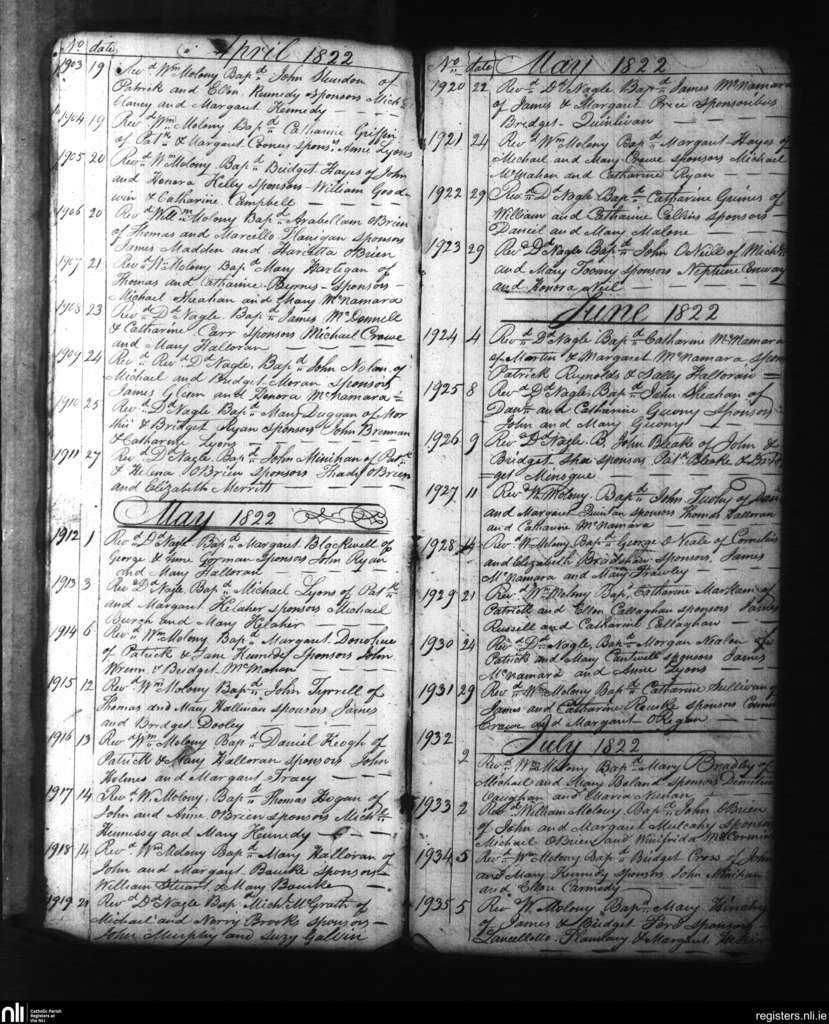 No date April 1822
1903 19 Revd Wm Molony Bapd John Sheedon of
Patrick and Ellen Kennedy Sponsors Michl
Clancy and Margaret Kennedy
1904 19 Revd Wm Molony Bapd Catharine Griffin
of Patk & Margaret Cooney Sponsrs Anne Lyons
1905 20 Revd Wm Molony Bapd Bridget Hayes of John
and Honora Kelly Sponsors William Good-
win & Catharine Campbell
1906 20 Revd Willm Molony Bapd Arabellam OBrien
of Thomas and Marcello Flanigan Sponsors
James Madden and Harietta OBrien
1907 21 Revd Wm Molony Bapd Mary Hartigan of
Thomas and Catharine Byrnes Sponsors
Michael Sheahan and Mary McNamara
1908 23 Revd Dl Nagle Bapd James McDonnell
& Catharine Carr Sponsors Michael Crowe
and Mary Halloran
1909 24 Revd Revd Dl Nagle Bapd John Nolan of
Michael and Bridget Moran Sponsors
James Glenn and Honora McNamara
1910 25 Revd Dl Nagle Bapd Mary Duggan of Mor
& Bridget Ryan Sponsors John Brennan
& Catharine Lyons
1911 27 Revd Dl Nagle Bapd John Minihan of Patk
& Helena OBrien Sponsors Thady OBrien
and Elizabeth Merritt
May 1822
1912 1 Revd Dl Nagle Bapd Margaret Blackwell of
George & Jane Gorman Sponsors John Ryan
and Mary Halloran
1913 3 Revd Dl Nagle Bapd Michael Lyons of Patk
and Margaret Kelaher Sponsors Michael
Burgh and Mary Kelaher
1914 6 Revd Wm Molony Bapd Margaret Donohue
of Patrick & Jane Kennedy Sponsors John
Wrenn & Bridget McMahon
1915 12 Revd Wm Molony Bapd John Tyrrell of
Thomas and Mary Hallinan sponsors James
and Bridget Dooley
1916 13 Revd Wm Molony Bapd Daniel Keogh of
Patrick & Mary Halloran sponsors John
Holmes and Margaret Tracy
1917 14 Revd W. Molony. Bapd Thomas Hogan of
John and Anne OBrien sponsors Michl
Hennessy and Mary Kennedy
1918 14 Revd Wm Molony Bapd Mary Halloran of
John and Margaret Bourke Sponsors
William Stuart & Mary Bourke
1919 21 Revd Dl Nagle Bapd Michl McGrath of
Michael and Norry Brooks sponsors
John Murphy and Suzy Galvin
No date May 1822
1920 22 Revd Dl Nagle Bapd James McNamara
of James & Margaret Price Sponsoribus
Bredget Quinlivan
1921 24 Revd Wm Molony Bapd Margaret Hayes of
Michael and Mary Crowe sponsors Michael
McMahon and Catharine Ryan
1922 29 Revd Dl Nagle Bapd Catharine Grimes of
William and Catharine Collins sponsors
Daniel and Mary Malone
1923 29 Revd Dl Nagle Bapd John ONeill of Michl
and Mary Toomy sponsors Neptune Conway
and Honora Neil
June 1822
1924 4 Revd Dl Nagle Bapd Catharine McNamara
of Martin & Margaret McNamara spon
Patrick Reynolds & Sally Halloran
1925 8 Revd Dl Nagle Bapd John Sheahan of
Danl and Catharine Sponsors
John and Mary
1926 9 Revd Dl Nagle B. John Bleake of John &
Bridget Shea sponsors Patk Bleake & Brid
get Minogue
1927 11 Revd W. Molony. Bapd John of
and Margaret Quinlan sponsors Thomas Halloran
and Catharine McNamara
1928 14 Revd W. Molony Bapd George O Neale of Cornelius
and Elizabeth Bradshaw Sponsors, James
McNamara and Mary Frawley
1929 21 Revd Wm Molony Bapd Catharine Markam of
Patrick and Ellen Callaghan sponsors James
Russell and Catharine Callaghan
1930 24 Revd Dl Nagle, Bapd Morgan of
Patrick and Mary Cantwell sponsors James
McNamara and Anne Lyons
1931 29 Revd Wm Molony Bapd Catharine Sullivan of
James and Catharine Rourke sponsors
Crowe and Margaret ORegan
1932
July 1822
2 Revd Wm Molony Bapd Mary Bradley of
Michael and Mary Boland Sponsors
Vaughan and Maria
1933 2 Revd William Molony, Bapd John OBrien
of John and Margaret Mulcahy Sponsors
Michael OBrien and Winifrida McCormick
1934 5 Revd Wm Molony Bapd Bridget Cross of John
and Mary Kennedy sponsors John Minihan
and Ellen Carmody
1935 5 Revd W. Molony Bapd Mary Hinchy
of James & Bridget Ford Sponsors
& Margaret
nli Catholic Parish
Registers at
the NLI
registers.nli.ie